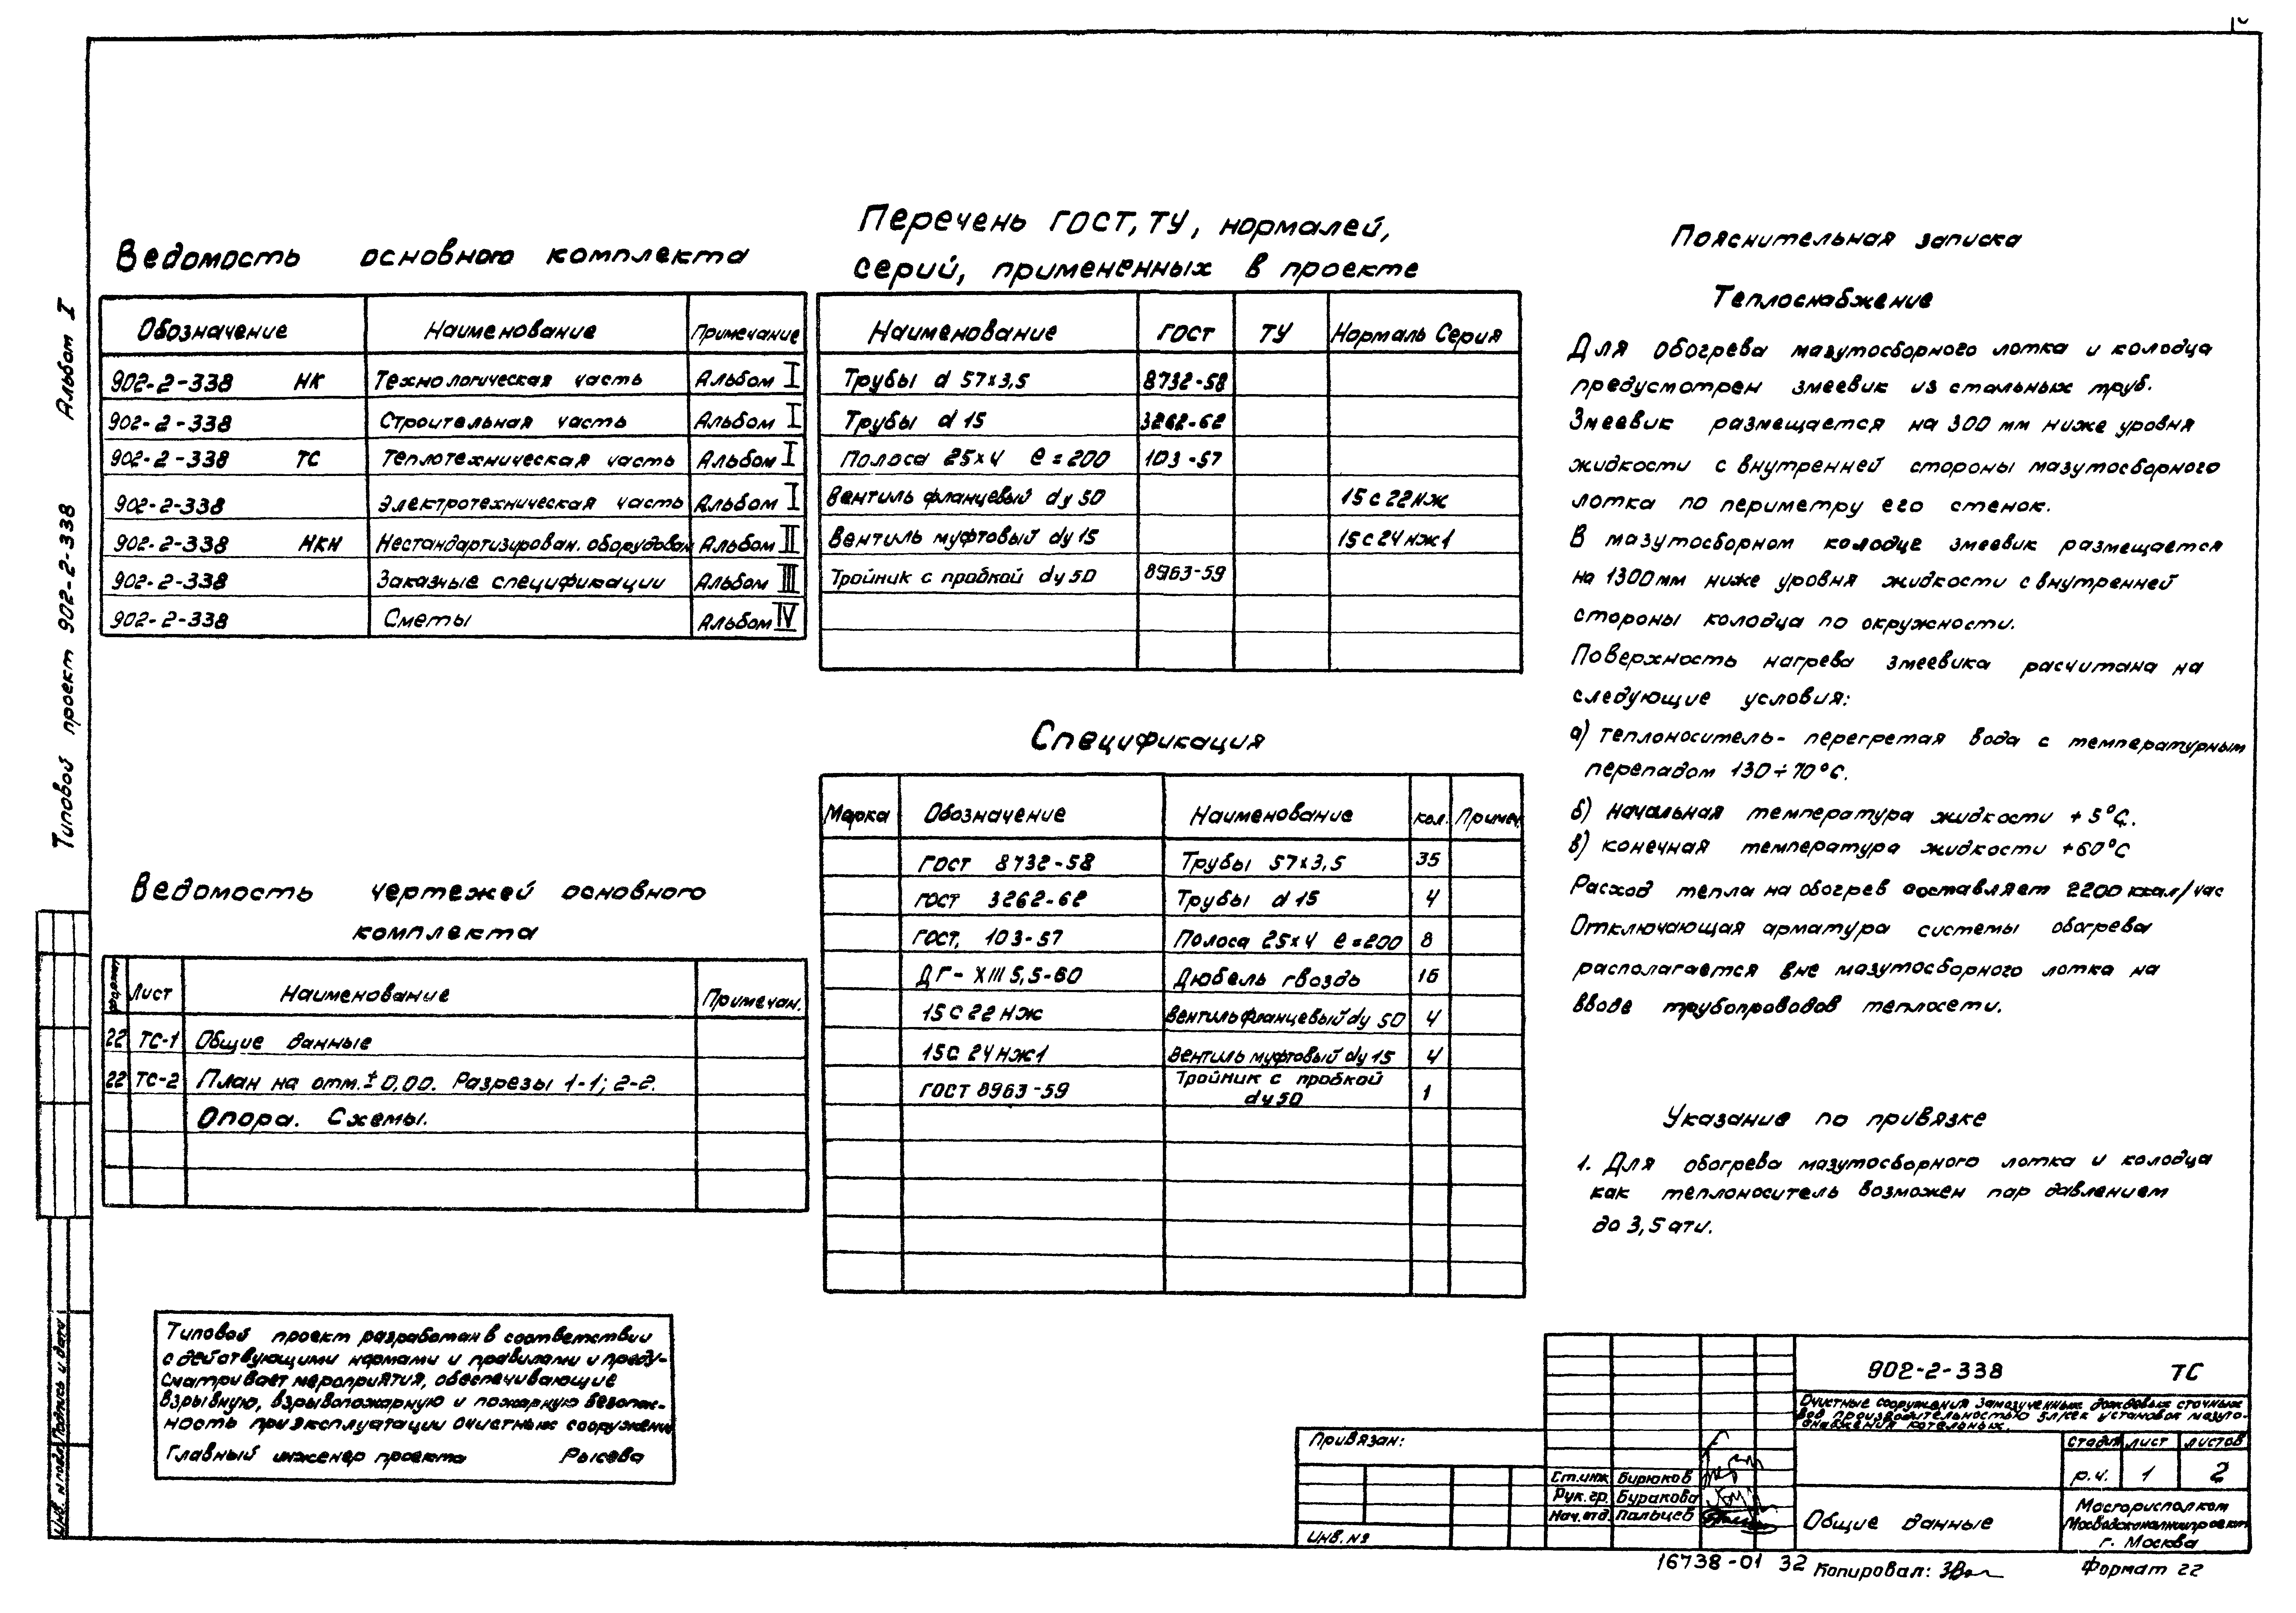 Альбом I
Типовой проект 902-2-338
Ведомость основного комплекта
Обозначение Наименование Примечание
902-2-338 НК Технологическая часть Альбом I
902-2-338 Строительная часть Альбом I
902-2-338 ТС Теплотехническая часть Альбом I
902-2-338 Электротехническая часть Альбом I
902-2-338 НКН Нестандартизирован. оборудован Альбом II
902-2-338 Заказные спецификации Альбом III
902-2-338 Сметы Альбом IV
Ведомость чертежей основного
комплекта
Формат Лист Наименование Примечан.
22 ТС-1 Общие данные
22 ТС-2 План на отм. ± 0,00. Разрезы 1-1; 2-2.
Опора. Схемы.
Типовой проект разработан в соответствии
с действующими нормами и правилами и преду-
сматривает мероприятия, обеспечивающие
взрывную, взрывопожарную и пожарную безопас-
ность при эксплуатации очистных сооружений
Главный инженер проекта Рысева
Перечень ГОСТ, ТУ, нормалей,
серий, примененных в проекте
Наименование ГОСТ ТУ Нормаль Серия
Трубы d 57×3,5 8732-58
Трубы d 15 3262-62
Полоса 25×4 ℓ=200 103-57
Вентиль фланцевый dу 50 15с22нж
Вентиль муфтовый dу 15 15с24нж1
Тройник с пробкой dу 50 8963-59
Спецификация
Марка Обозначение Наименование кол. Примеч.
ГОСТ 8732-58 Трубы 57×3,5 35
ГОСТ 3262-62 Трубы d 15 4
ГОСТ. 103-57 Полоса 25×4 ℓ=200 8
ДГ- XIII 5,5-60 Дюбель гвоздь 16
15С 22 НЖ Вентиль фланцевый dу 50 4
15С 24 НЖ1 Вентиль муфтовый dу 15 4
ГОСТ 8963-59 Тройник с пробкой
dу 50 1
Пояснительная записка
Теплоснабжение
Для обогрева мазутосборного лотка и колодца
предусмотрен змеевик из стальных труб.
Змеевик размещается на 300 мм ниже уровня
жидкости с внутренней стороны мазутосборного
лотка по периметру его стенок.
В мазутосборном колодце змеевик размещается
на 1300мм ниже уровня жидкости с внутренней
стороны колодца по окружности.
Поверхность нагрева змеевика расчитана на
следующие условия:
а) теплоноситель- перегретая вода с температурным
перепадом 130÷70°С.
б) начальная температура жидкости +5°С.
в) конечная температура жидкости +60°С
Расход тепла на обогрев составляет 2200 ккал/час
Отключающая арматура системы обогрева
располагается вне мазутосборного лотка на
вводе трубопроводов теплосети.
Указание по привязке
1. Для обогрева мазутосборного лотка и колодца
как теплоноситель возможен пар давлением
до 3,5 ати.
902-2-338 ТС
Очистные сооружения замазученных дождевых сточных
вод производительностью 5л/сек установок мазуто-
снабжения котельных.
Стадия Лист Листов
р.ч. 1 2
Общие данные
Мосгорисполком
Мосводоканалниипроект
г. Москва
Привязан:
Инв. №
Ст.инж. Бирюков
Рук. гр. Буракова
Нач. отд. Пальцев
Инв. № подл. Подпись и дата
16738-01 32 Копировал: Формат 22